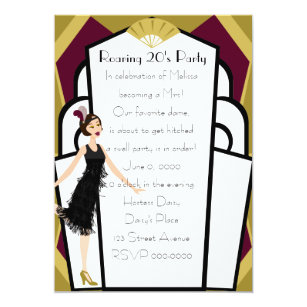 Roaring 20's Party
In celebration of Melissa
becoming a Mrs!
Our favorite dame,
is about to get hitched
a swell party is in order!
June 0, 0000
0 o'clock in the evening
Hostess Daisy
Daisy's Place
123 Street Avenue
RSVP 000.0000